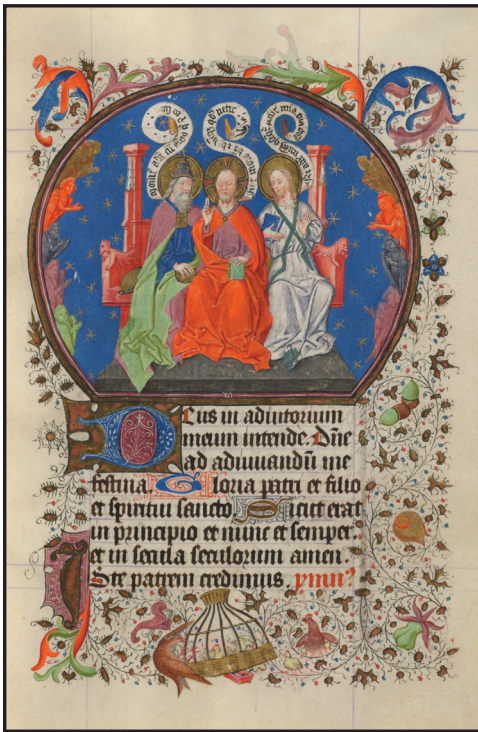 Deus in adiutorium
meum intende. Dñe
ad adiuuandũ me
festina. Gloria patri et filio
et spiritui sancto. Sicut erat
in principio et nunc et semper.
et in secula seculorum amen.
Ste patrem credimus. ymn⁹